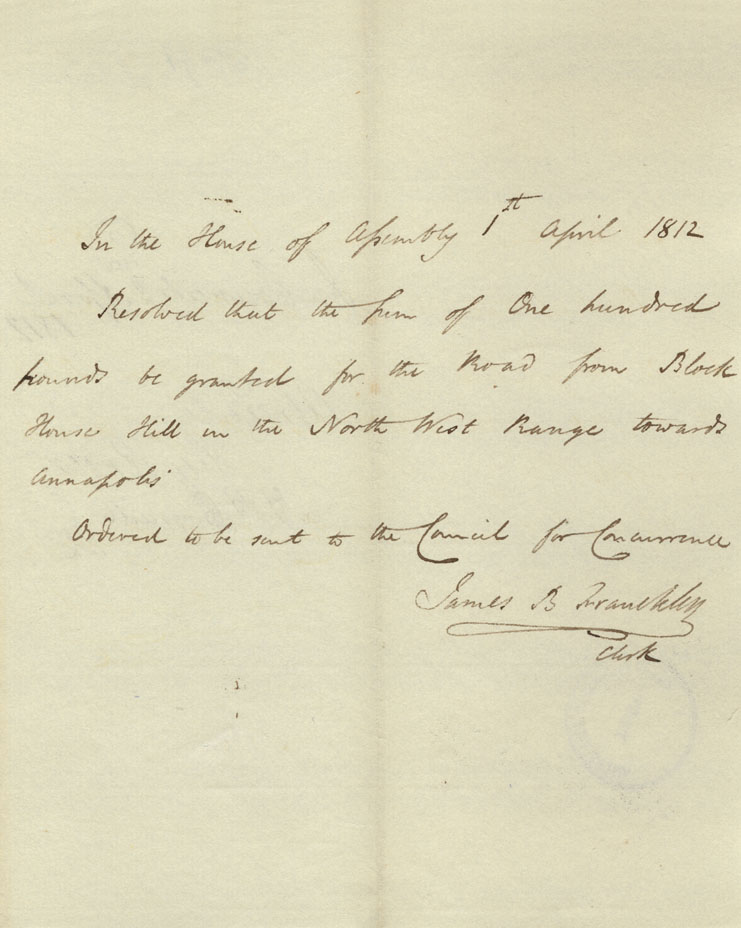 In the House of Assembly 1st April 1812
Resolved that the sum of One hundred
pounds be granted for the Road from Block
House Hill in the North West Range towards
Annapolis
Ordered to be sent to the Council for Concurrence
James B Franckley
Clerk